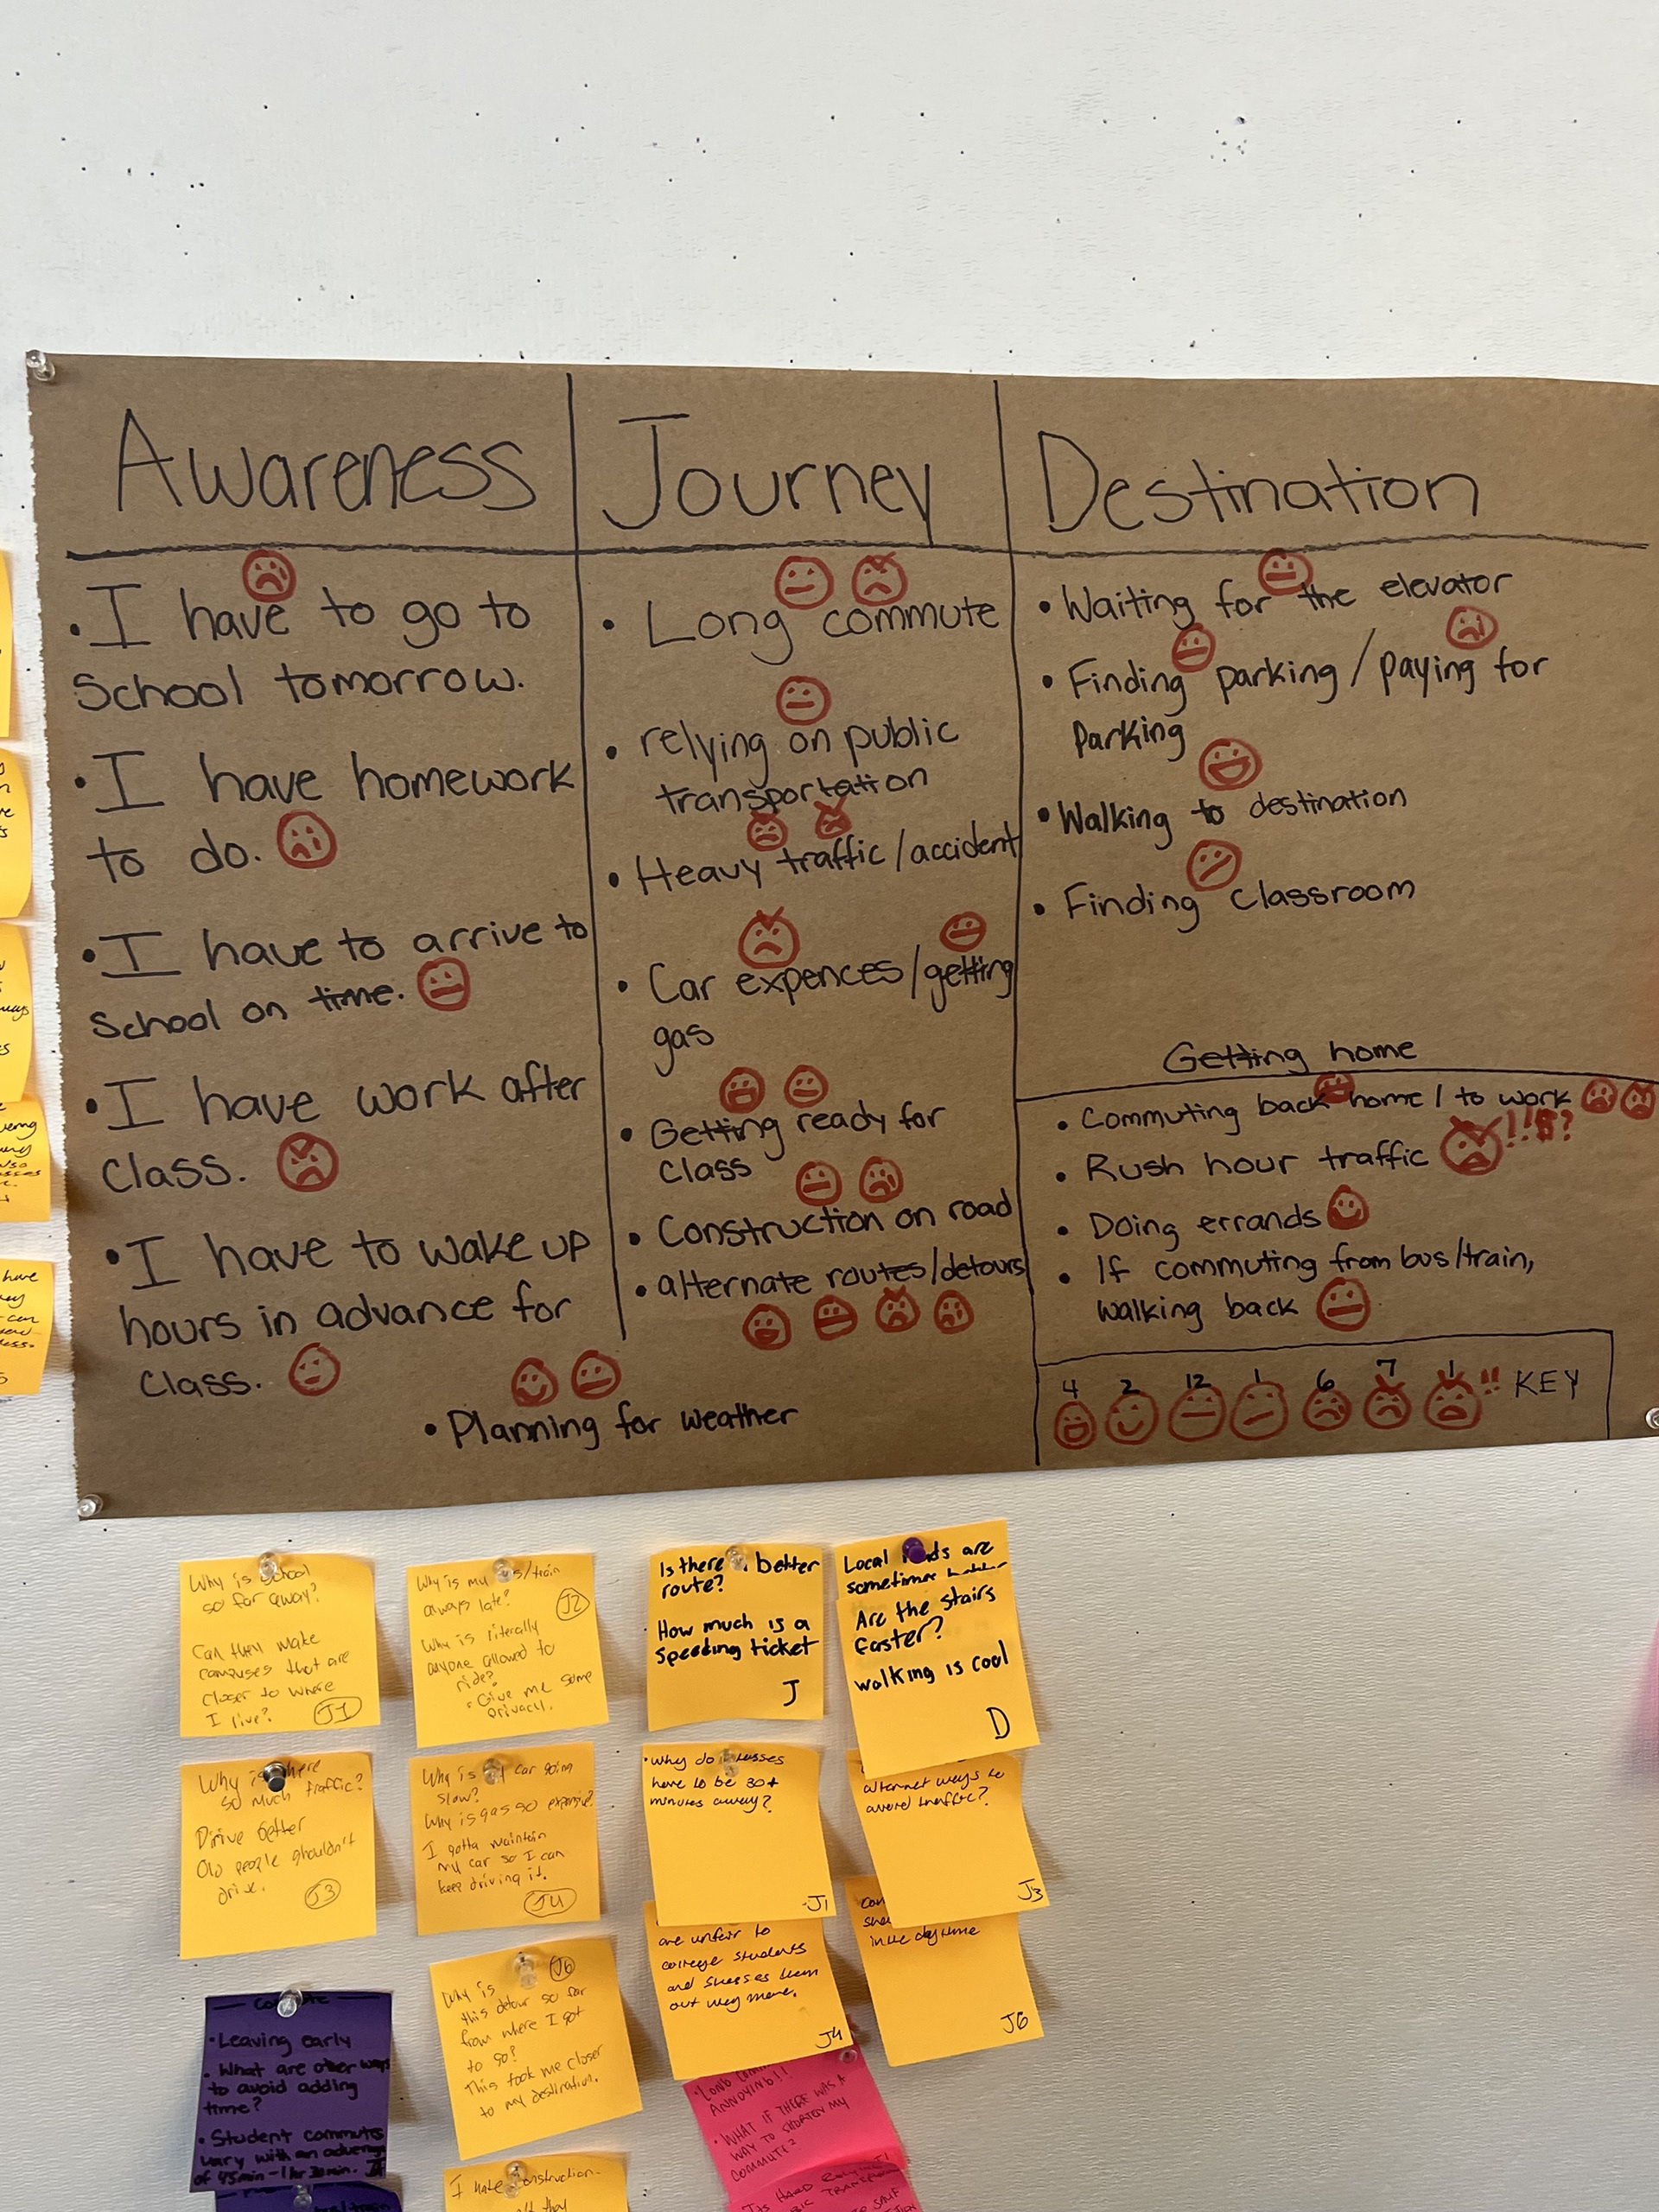 Awareness
• I have to go to
School tomorrow.
• I have homework
to do.
• I have to arrive to
School on time.
• I have work after
class.
• I have to wake up
hours in advance for
class.
• Planning for weather
Journey
• Long commute
• relying on public
transportation
• Heavy traffic/accident
• Car expences/getting
gas
• Getting ready for
class
• Construction on road
• alternate routes/detours
Destination
• Waiting for the elevator
• Finding parking/paying for
Parking
• Walking to destination
• Finding classroom
Getting home
• Commuting back home / to work
!!!??
• Rush hour traffic
• Doing errands
• If commuting from bus/train,
walking back
4 2 12 1 6 7 1 !! KEY
Why is school
so far away?
Can they make
campuses that are
closer to where
I live?
J1
Why is my /train
always late?
Why is literally
anyone allowed to
ride?
• Give me some
privacy.
J2
Is there better
route?
How much is a
speeding ticket
J
Local are
sometimes
Are the stairs
faster?
walking is cool
D
Why is there
so much traffic?
Drive better
Old people shouldn't
drive.
J3
Why is car going
slow?
Why is gas so expensive?
I gotta maintain
my car so I can
keep driving it.
J4
• Why do
have to be 30+
minutes away?
J1
alternet ways to
avoid traffic?
J3
are unfair to
college students
and stresses them
out way more.
J4
in the daytime
J6
• Leaving early
• What are other ways
to avoid adding
time?
• Student commutes
vary with an
of 45min-1hr 30min.
J6
Why is
this detour so far
from where I got
to go?
This took me closer
to my destination.
LONG
ANNOYING!!
• WHAT IF THERE WAS A
WAY TO SHORTEN MY
COMMUTE?
I hate construction.
ITS HARD